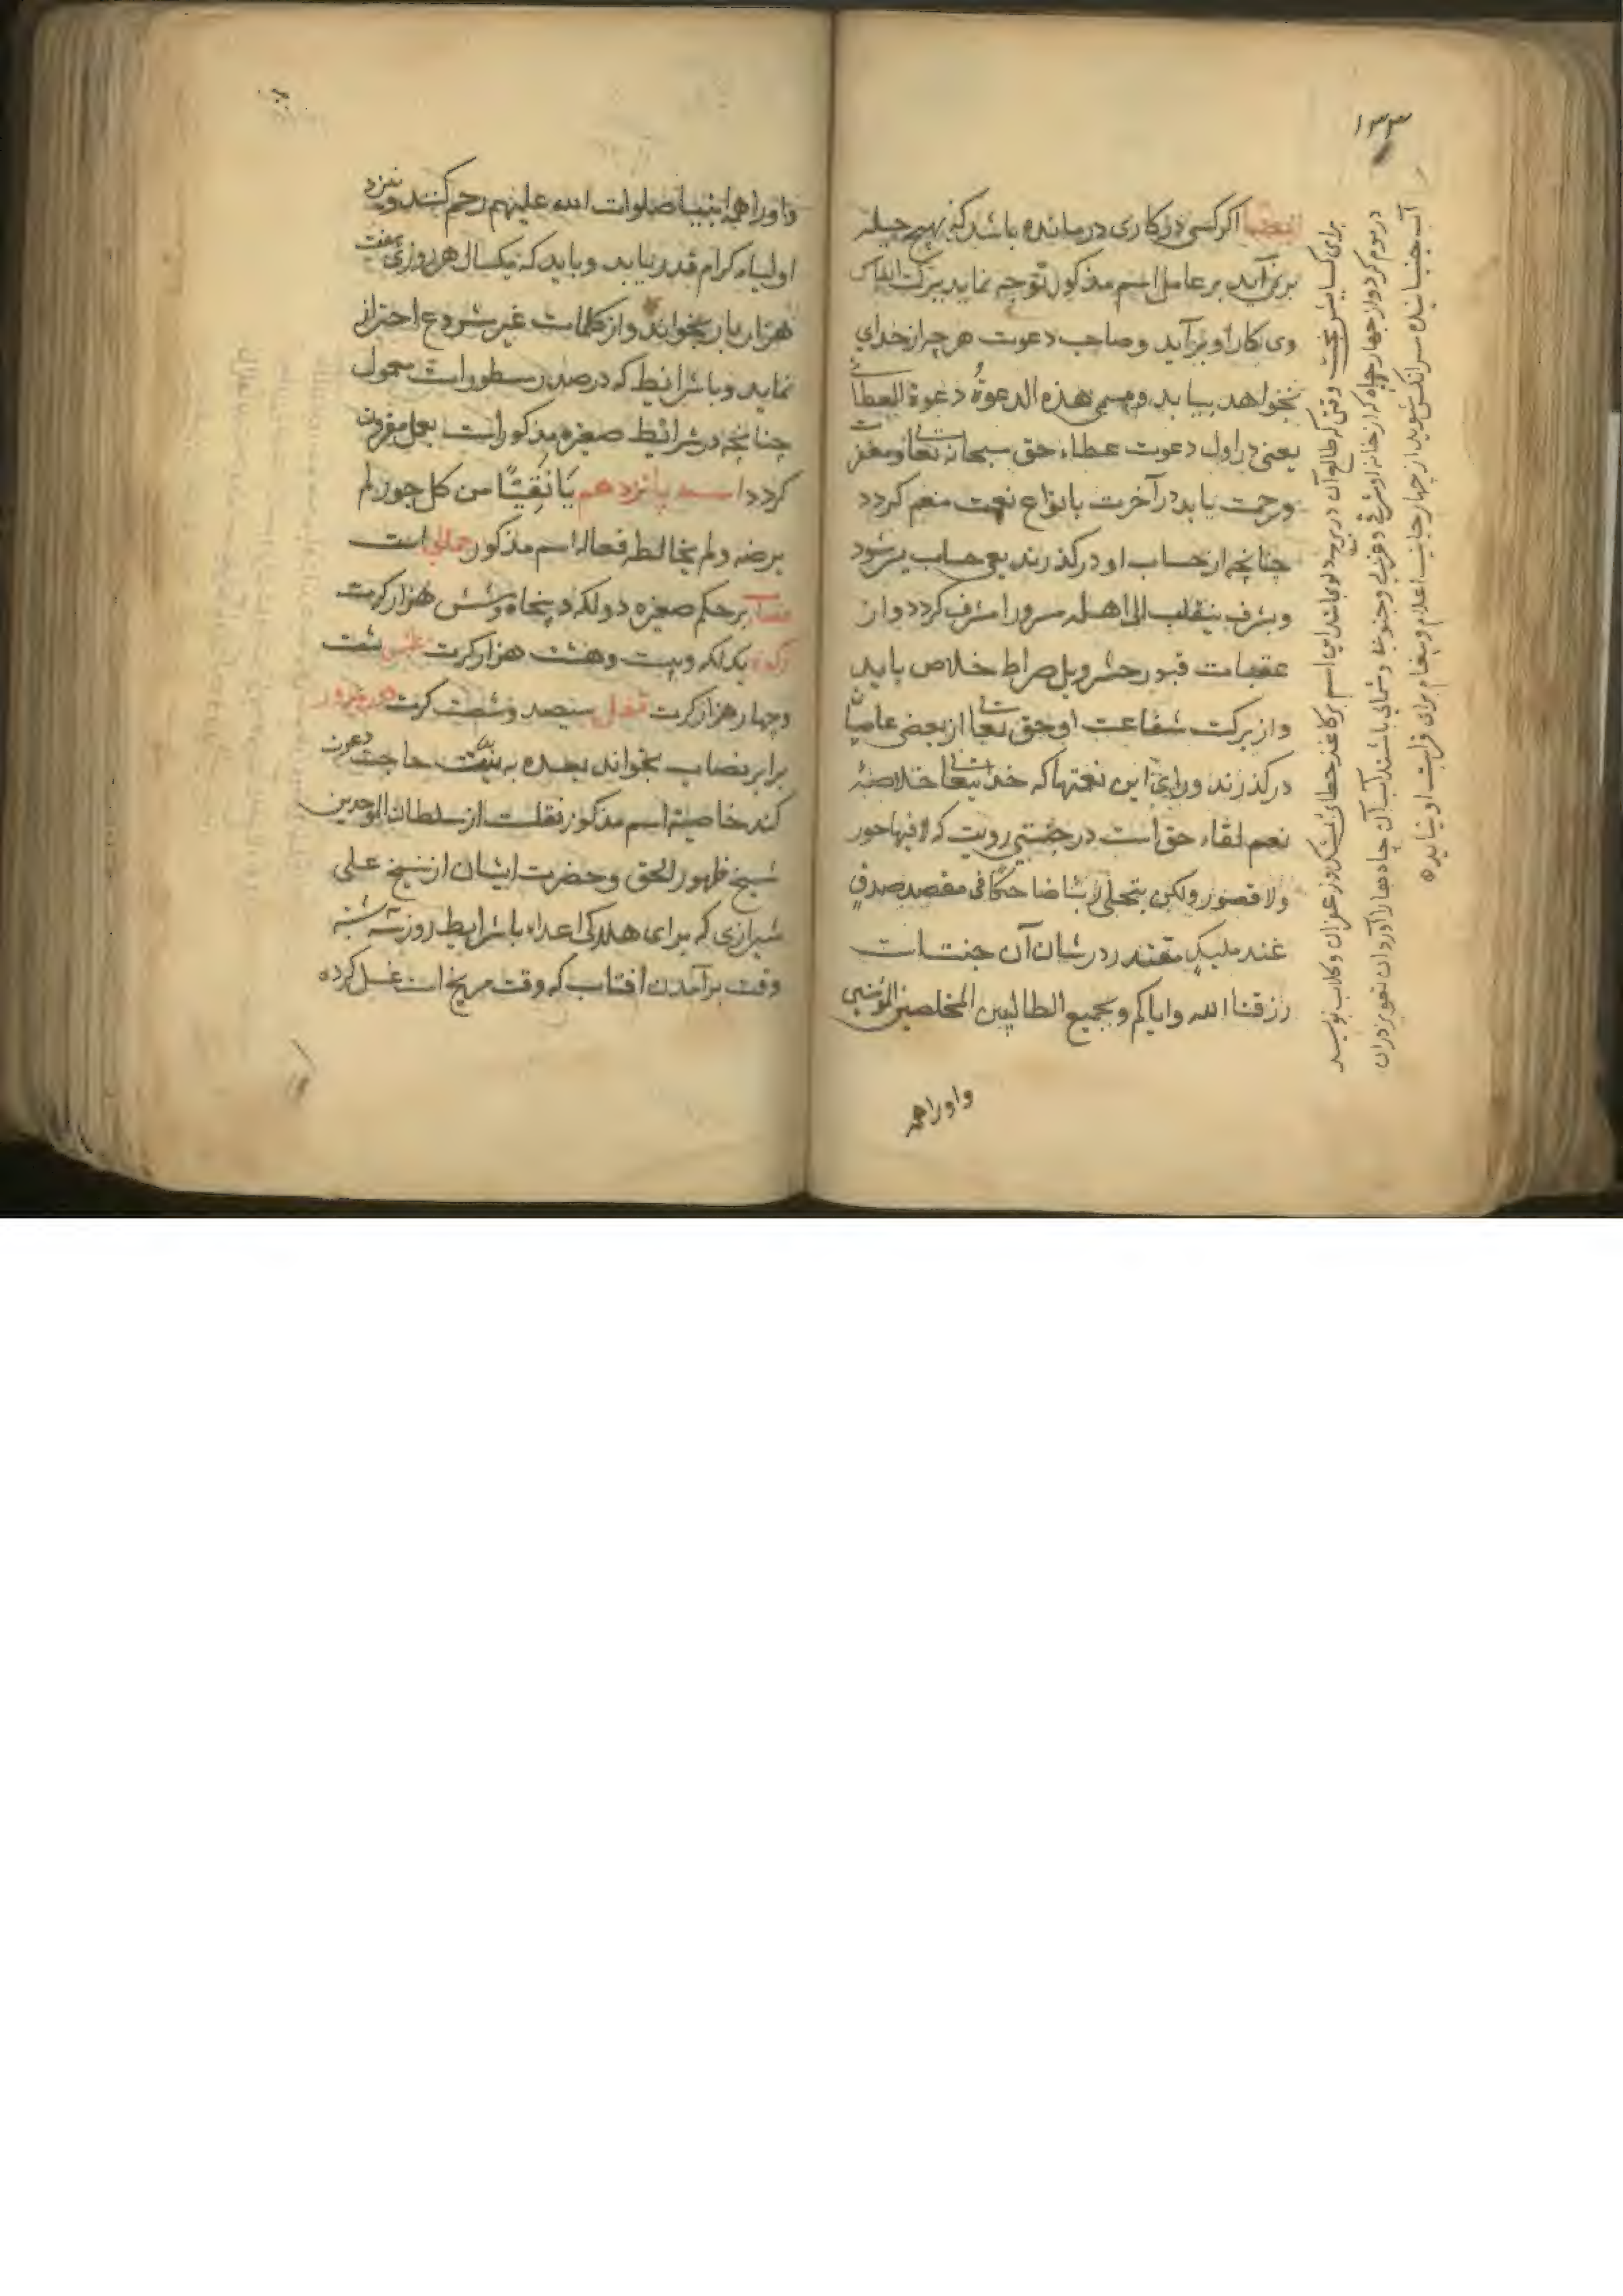 ۱۳۳
ایضا اگر کسی در کاری درمانده باشد که بهیچ حیله
برنمی آید بر عامل اسم مذکور توجه نماید ببرکت انفاس
وی کار او برآید و صاحب دعوت هر چه از خدای
بخواهد بیابد و یسمی هذه الدعوة دعوة العطا
یعنی در اول دعوت عطاء حق سبحانه تعالی و مغفرت
و رحمت یابد در آخرت بانواع نعمت منعم کردد
چنانچه از حساب او درگذرند بی حساب
و بشرف ینقلب الی اهله مسرورا مشرف کردد و از
عقبات قبور حشر و پل صراط خلاص یابد
و از برکت شفاعت او حق تعالی از بعضی عاصیان
درگذرند ورای این نعمتها که خدایتعالی خلاصهٔ
نعم لقاء حق است در جنتی رویت که لا فیها حور
ولا قصور ولکن یتجلی ربنا ضاحکا فی مقعد صدق
عند ملیک مقتدر در شان آن جنت است
رزقنا الله وایاکم وبجمیع الطالبین المخلصین المؤمنین
و او را همه
برای کسایش بخت وقتی که طالع آن در برج دلو باشد این اسم بر کاغذ خطائی بمشک و زعفران و کلاب نویسد
در موم کرد و از چهار چاه که از خانه او شرقی و غربی و جنوبی و شمالی باشند آب آن چاه ها را آورد آن تعویذ در آن
آب جنبانیده سر آنکس شوید از چهار جانب اعلام و پیغام برای قرابت او بیاید
و او را همه انبیا صلوات الله علیهم رحم کنند و نزد
اولیاء کرام قدر یابد و باید که یکسال هر روزی هفت
هزار بار بخواند و از کلمات غیر مشروع احتراز
نماید و با شرایط که در صدر مسطور است معمول
چنانچه در شرائط صغیره مذکور است بعمل مقرون
کردد اسم پانزدهم یا نقیا من کل جور لم
یرضه ولم یخالطه فعاله اسم مذکور جمالی است
نصاب بر حکم صغیره دو لکه و پنجاه و شش هزار کرت
زکوة یک لکه و بیست و هشت هزار کرت عشر شصت
و چهار هزار کرت قفل سیصد و شصت کرت دور مدور
برابر نصاب بخواند بعده به نیت حاجت دعوت
کند خاصیة اسم مذکور نقلست از سلطان الموحدین
شیخ ظهور الحق و حضرت ایشان از شیخ علی
شیرازی که برای هلاکی اعداء با شرایط روز سه شنبه
وقت برآمدن افتاب که وقت مریخ است غسل کرده